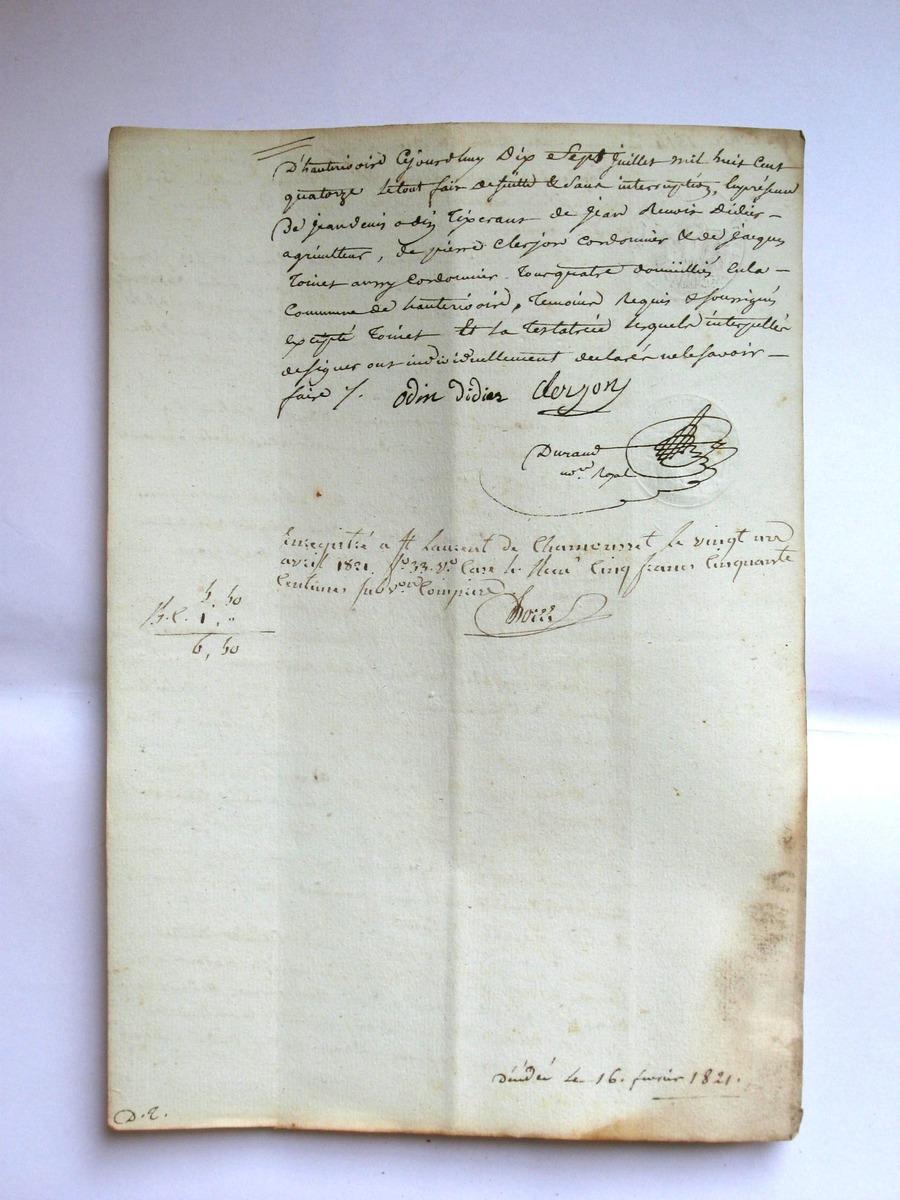 D'hauterivoire Cejourdhuy Dix e Sept juillet mil huit Cent
quatorze le tout fait de suitte & Sans interruption, En présence
De jean denis odin Tixerant de jean Benoit Didier –
agriculteur, de pierre Clerjon Cordonnier & de jacques
Toinet aussy Cordonnier Tous quatre domiciliés En la –
Commune de hauterivoire, Temoins Requis & soussignés
excepté Toinet Et La Testatrice lesquels interpellés
de signer ont individuellement declarés ne le savoir –
faire /.
odin Didier Clerjon
Durand
no.re Royal
Enregistré a St Laurent de Chamousset le vingt un
avril 1821. fo. 33. vo. Case Reçu Cinq francs Cinquante
Centimes subv.on Comprise
5, 50
1, "
6, 50
Décédée Le 16. fevrier 1821.
D. T.